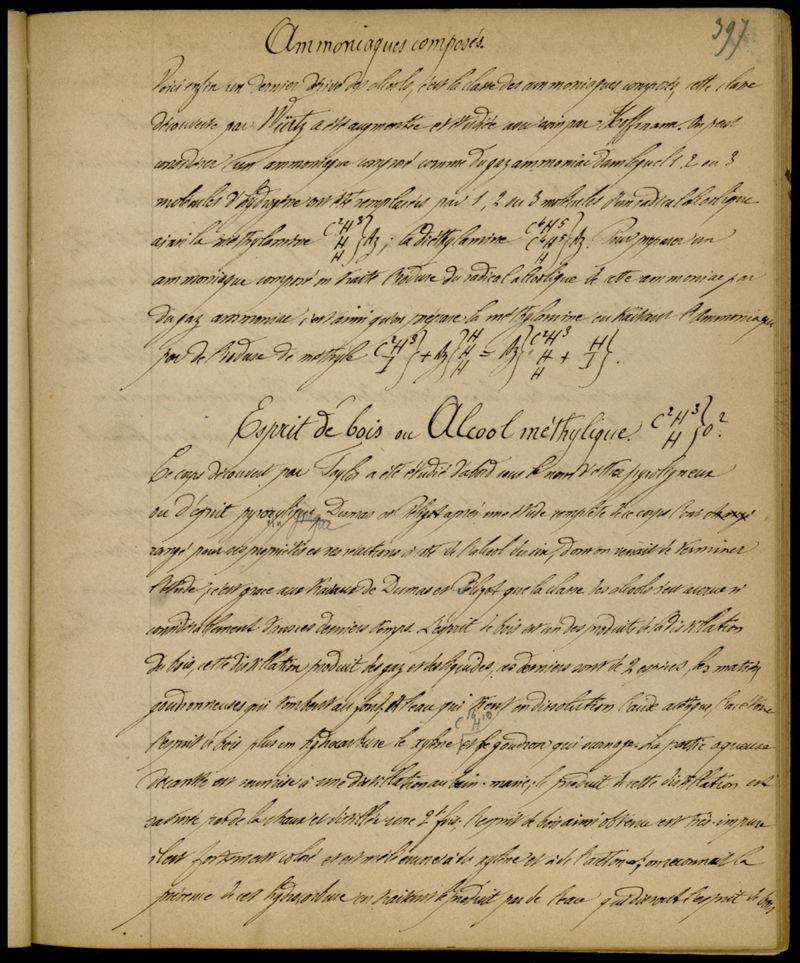 397
Ammoniaques composés.
Voici enfin un dernier dérivé des alcools, c'est la classe des ammoniaques composés, cette classe
découverte par Würtz a été augmentée et étudiée avec soin par Hoffmann. On peut
considérer un ammoniaque composé comme du gaz ammoniac dans lequel 1, 2 ou 3
molécules d'hydrogène ont été remplacées par 1, 2 ou 3 molécules d'un radical alcoolique
ainsi la méthylamine C²H³ H H } Az ; la diéthylamine C⁴H⁵ C⁴H⁵ H } Az. Pour préparer un
ammoniaque composé on traite l'iodure du radical alcoolique de cette ammoniac par
du gaz ammoniac, c'est ainsi qu'on prépare la méthylamine en traitant l'Ammoniaque
par de l'iodure de méthyle C²H³ I } + Az { H H H = Az } C²H³ H H + H I }.
Esprit de bois ou Alcool méthylique. C²H³ H } O²
Ce corps découvert par Taylor a été étudié d'abord sous le nom d'éther pyroligneux
ou d'esprit pyroxylique. Dumas et Péligot après une étude complète de ce corps l'ont
rangé pour ses propriétés et ses réactions à côté de l'alcool du vin, dont on venait de terminer
l'étude, c'est grâce aux travaux de Dumas et Péligot que la classe des alcools s'est accrue si
considérablement dans ces derniers temps. L'esprit de bois est un des produits de la distillation
du bois, cette distillation produit des gaz et des liquides, ces derniers sont de 2 espèces, les matières
goudronneuses qui tombent au fond, et l'eau qui tient en dissolution l'acide acétique, l'acétone
l'esprit de bois plus un hydrocarbure le xylène C¹⁶H¹⁰ et le goudron qui surnage. La partie aqueuse
décantée est soumise à une distillation au bain-marie, le produit de cette distillation est
saturé par de la chaux et distillé une 2ᵉ fois, l'esprit de bois ainsi obtenu est très-impure
il est fortement coloré et est mêlé encore à du xylène et à de l'acétone, on reconnait la
présence de cet hydrocarbure en traitant le produit par de l'eau qui dissout l'esprit de bois